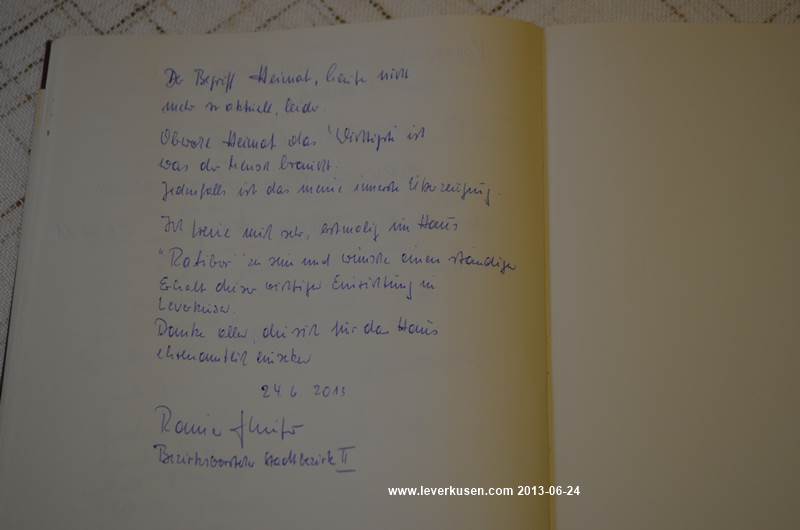 Der Begriff Heimat, heute nicht
mehr so aktuell, leider
Obwohl Heimat das Wichtigste ist
was der Mensch braucht.
Jedenfalls ist das meine innerste Überzeugung.
Ich freue mich sehr, erstmalig im Haus
"Ratibor" zu sein und wünsche einen ständigen
Erhalt dieser wichtigen Einrichtung in
Leverkusen.
Danke allen, die sich für das Haus
ehrenamtlich einsetzen
24.6 2013
Rainer
Bezirksvorsteher Stadtbezirk II
www.leverkusen.com 2013-06-24